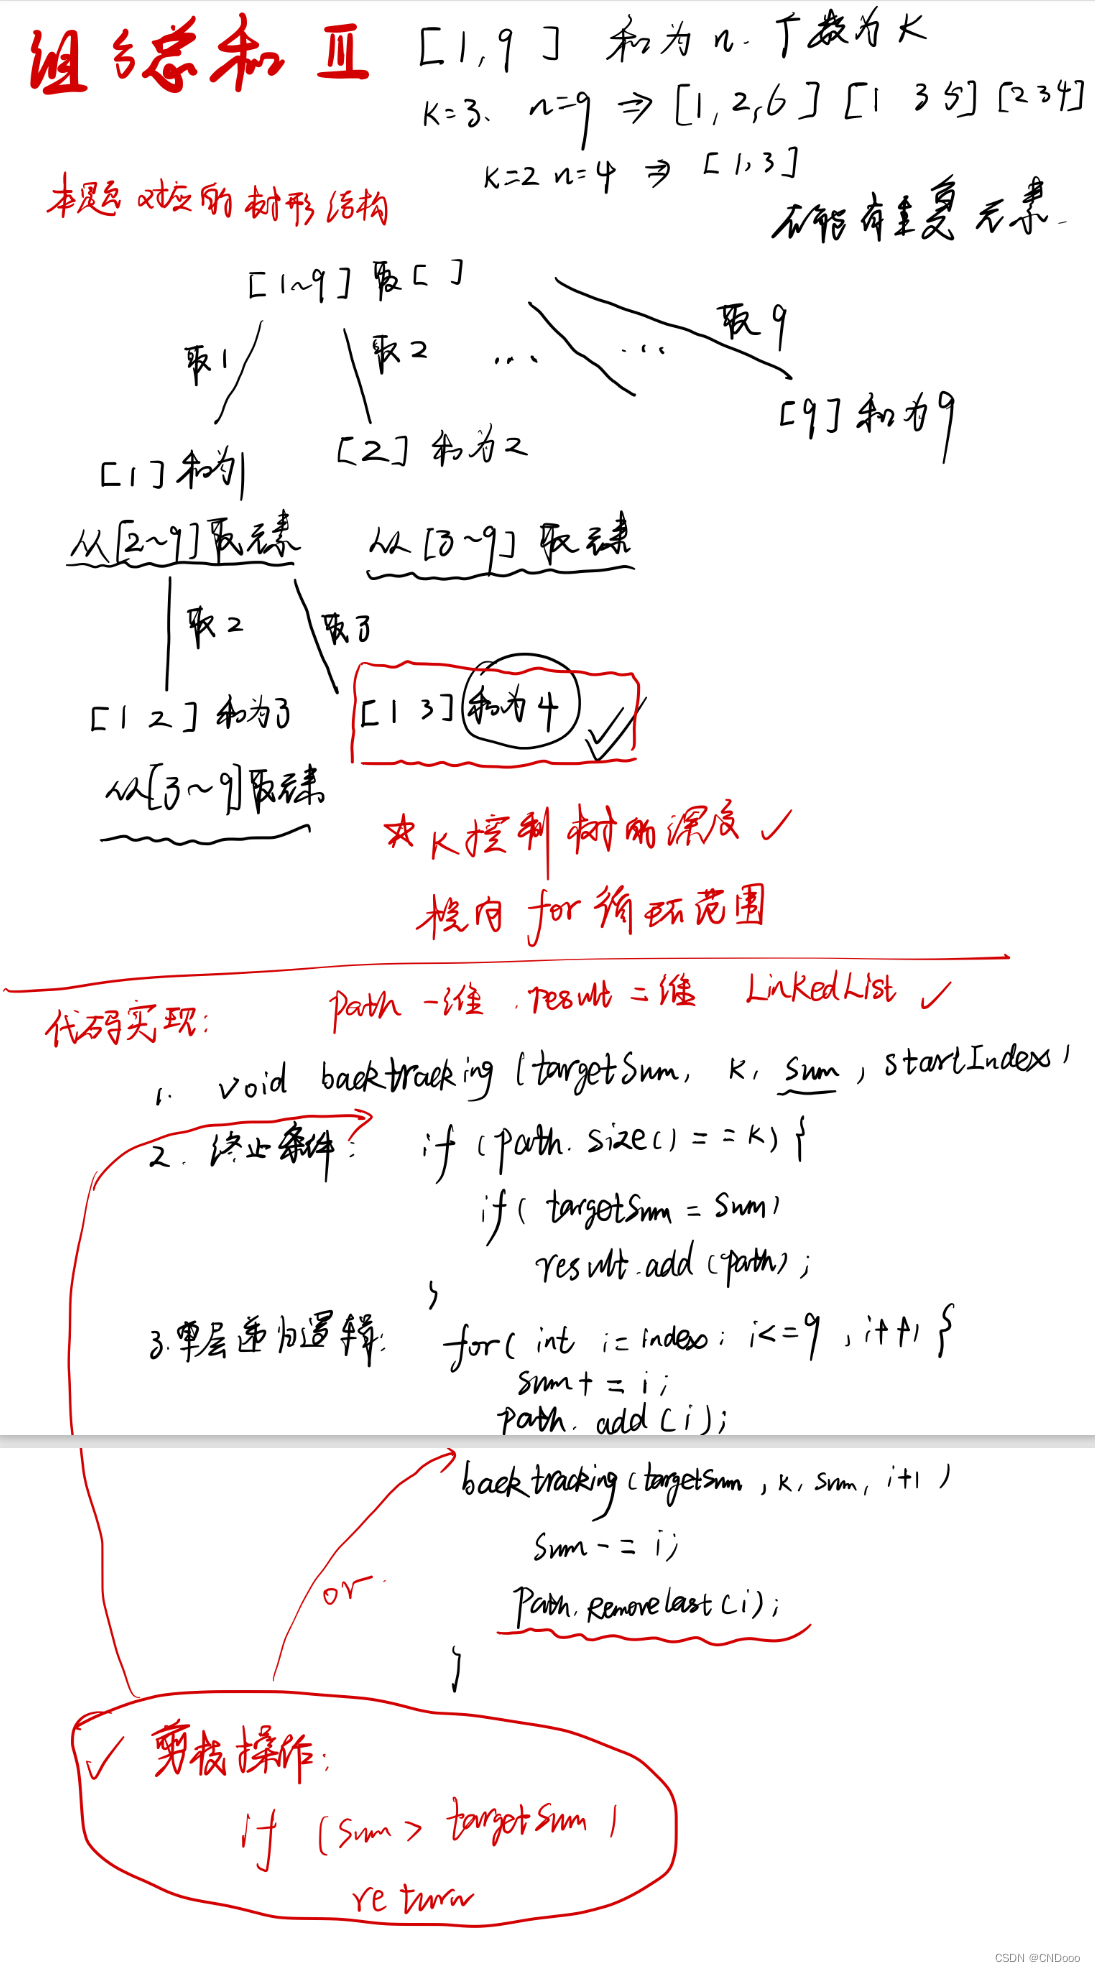 组合总和 III
[1,9] 和为n. 个数为K
K=3、 n=9 ⇒ [1,2,6] [1 3 5] [2 3 4]
K=2 n=4 ⇒ [1,3]
不能有重复元素.
本题对应的树形结构
[1~9] 取 [ ]
取1 取2 ... ... 取9
[1] 和为1 [2] 和为2 [9] 和为9
从[2~9]取元素 从[3~9]取元素
取2 取3
[1 2] 和为3 [1 3] 和为4
从[3~9]取元素
☆ K控制树的深度 ✓
横向 for 循环范围
代码实现: path 一维 . result 二维 LinkedList ✓
1. void backtracking (targetSum, K, sum, startIndex)
2. 终止条件: if (path. size() == K) {
if( targetSum = Sum)
result.add (path);
}
3.单层递归逻辑: for( int i = index; i<=9 , i++) {
sum+ = i;
path. add (i);
backtracking (targetSum , K, sum, i+1)
sum -= i;
or.
path. Removelast (i);
}
✓ 剪枝操作:
if (sum > targetSum)
return
CSDN @CNDooo